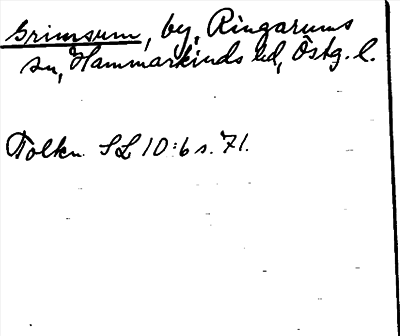 Grimsum, by, Ringarums
sn, Hammarkinds hd, Östg. l.
Tolkn. SL 10:6 s. 71.